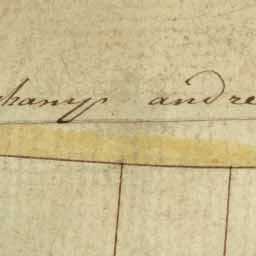 hany. andre